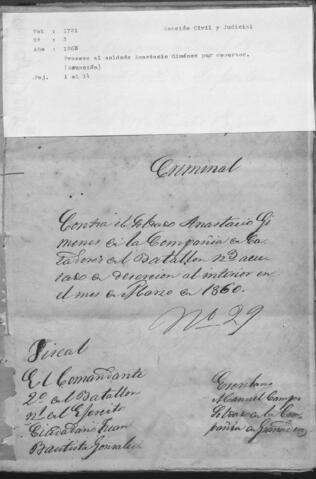 Vol : 1721 Sección Civil y Judicial
Nº : 3
Año : 1868
Proceso al soldado Anastacio Giménez por desertor.
(Asunción)
Foj. 1 al 14
Criminal
Contra el Soldado Anastacio Gi
menes de la Compañia de Ca
zadores del Batallon nº acu
sado de desercion al interior en
el mes de Marzo de 1860.
Nº 29
Fiscal
El Comandante
2º del Batallon
nº del Ejercito
Ciudadano Juan
Bautista Gonzalez
Escribano
Manuel Campos
Soldado de la Com
pañia de Granaderos